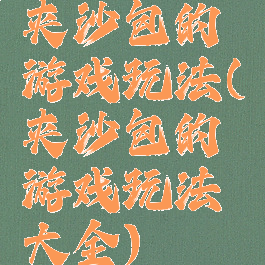 夹沙包的
游戏玩法(
夹沙包的
游戏玩法
大全)